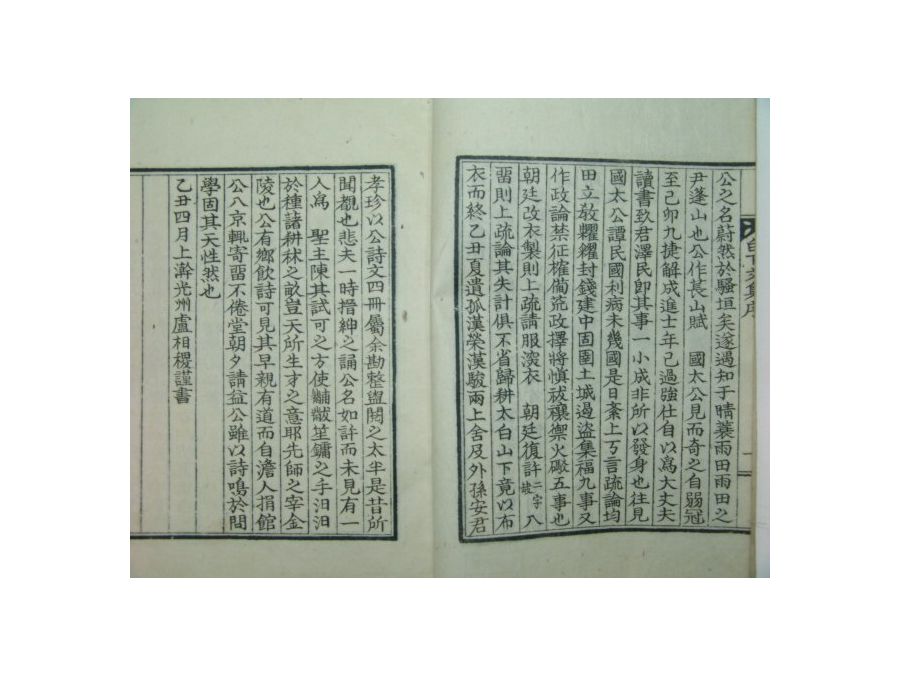 公之名蔚然於騷垣矣遂遇知于晴蓑雨田雨田之
尹蓬山也公作萇山賦 國太公見而奇之自弱冠
至己卯九捷解成進士年已過強仕自以爲大丈夫
讀書致君澤民卽其事一小成非所以發身也往見
國太公譚民國利病未幾國是日紊上万言疏論均
田立敎糶糴封錢建中固圉土城遏盜集福九事又
作政論禁征榷備荒政擇將愼祓禳禦火礮五事也
朝廷改衣製則上疏請服深衣 朝廷復許二字缺入
習則上疏論其失計俱不省歸耕太白山下竟以布
衣而終乙丑夏遺孤漢榮漢駿兩上舍及外孫安君
孝珍以公詩文四冊屬余勘整盥閱之太半是昔所
聞覩也悲夫一時搢紳之誦公名如許而未見有一
人爲 聖主陳其試可之方使黼黻笙鏞之手汩汩
於種諸耕秫之畝豈天所生才之意耶先師之宰金
陵也公有鄉飮詩可見其早親有道而自澹人捐館
公入京輒寄留不倦堂朝夕請益公雖以詩鳴於間
學固其天性然也
乙丑四月上澣光州盧相稷謹書
文集序
一